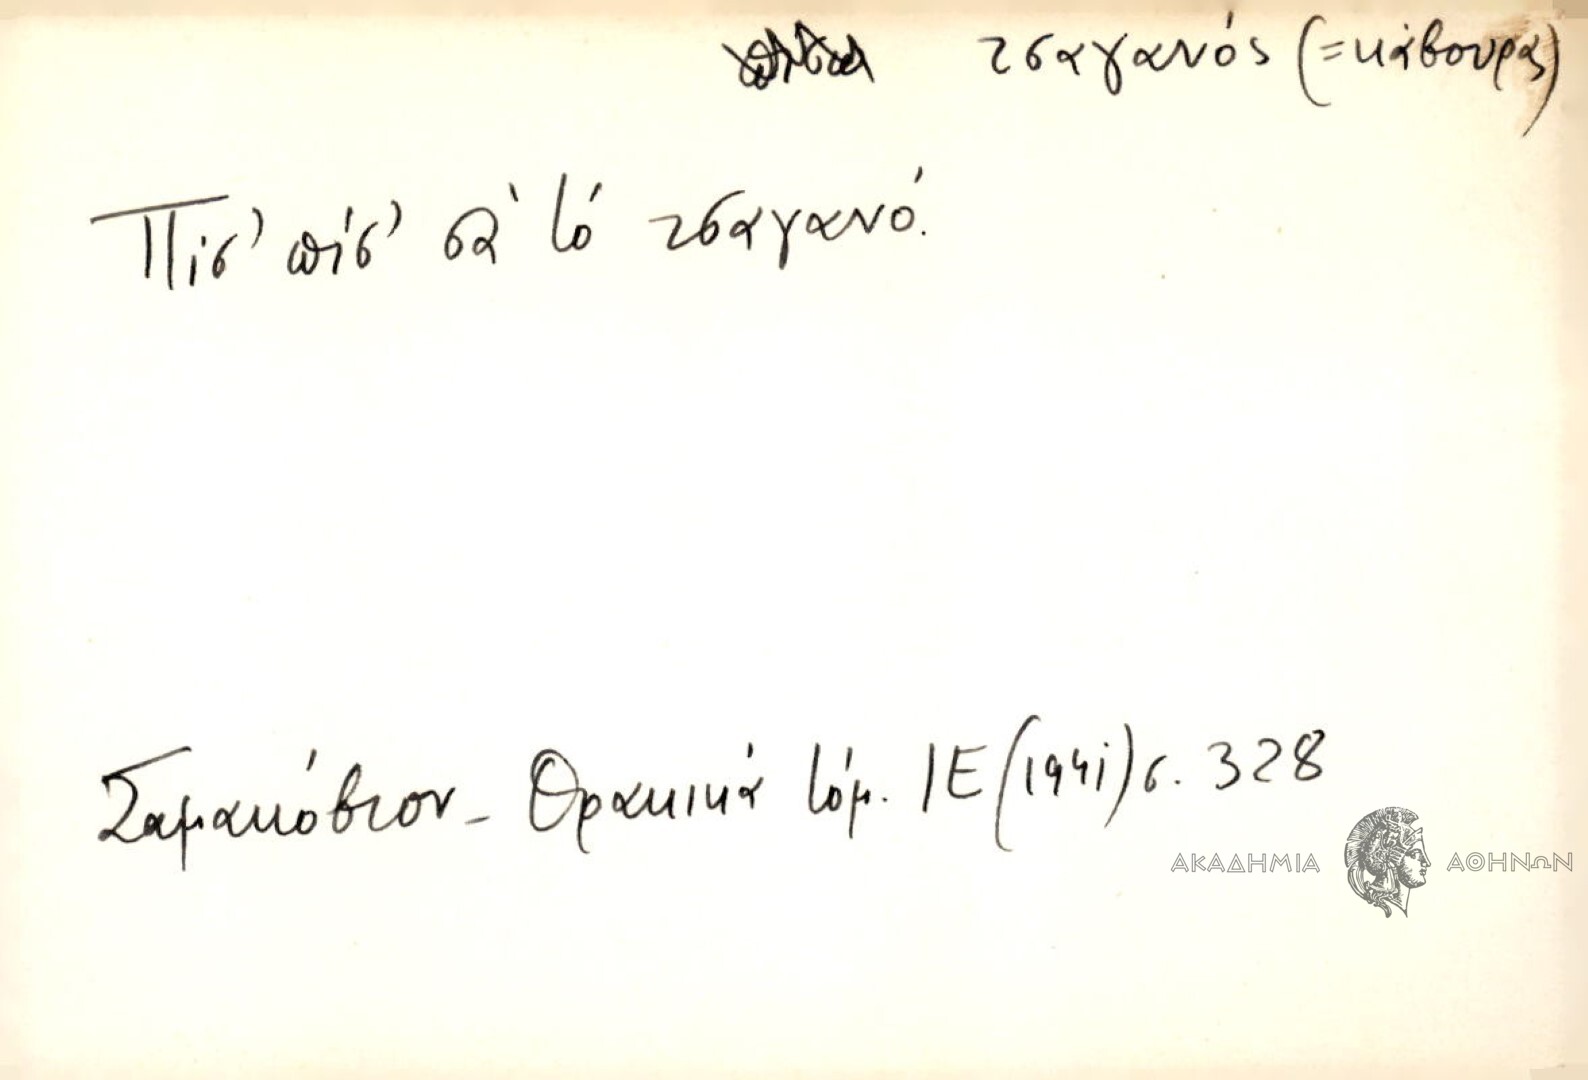 τσαγανός (=κάβουρας)
Πίσ' πίσ' σὰ τό τσαγανό.
Σαμακόβιον - Θρακικά τόμ. ΙΕ (1941) σ. 328
ΑΚΑΔΗΜΙΑ ΑΘΗΝΩΝ